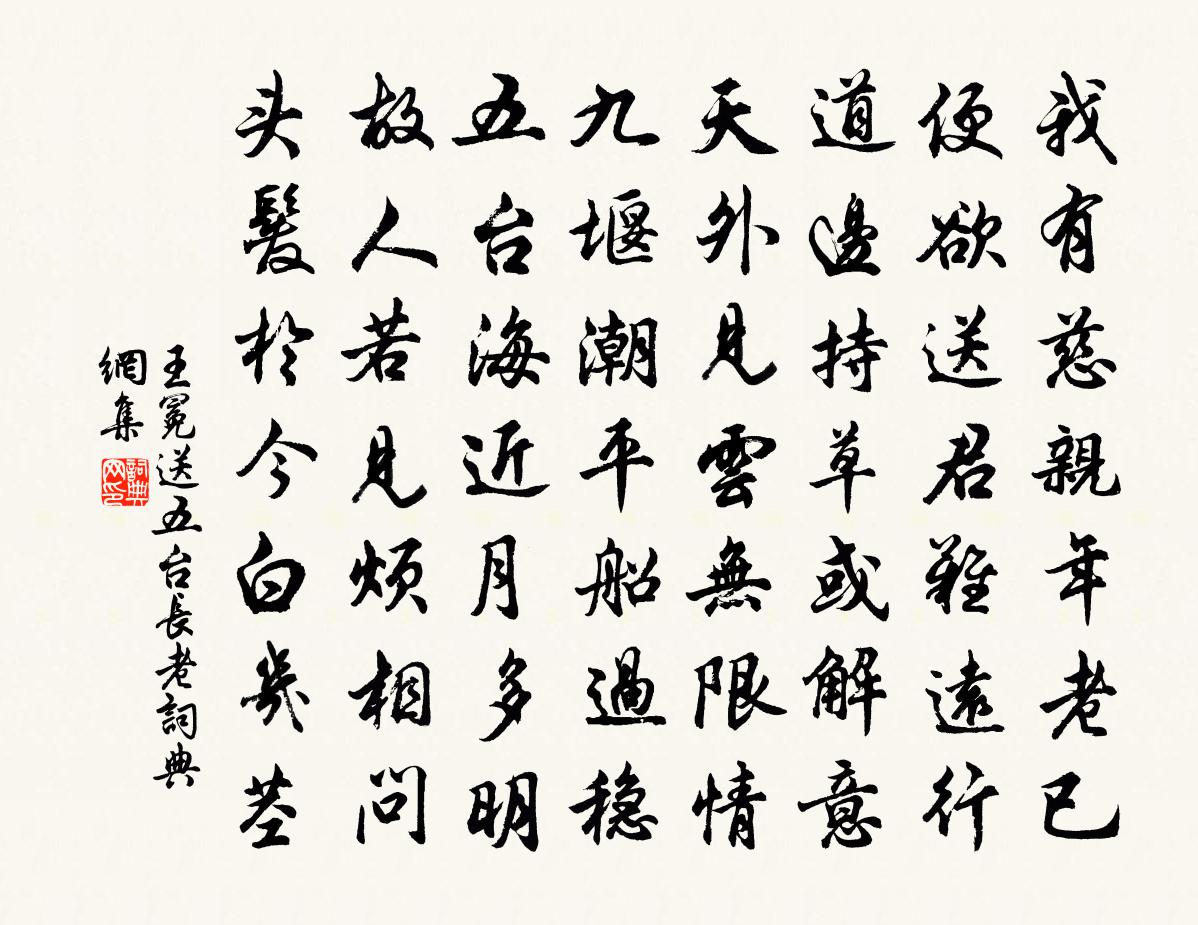 我有慈親年老已
便欲送君難遠行
道邊持草或解意
天外見雲無限情
九堰潮平船過穏
五台海近月多明
故人若見煩相問
头髮於今白幾茎
王冕送五台長老詞典
網集
詞典网印